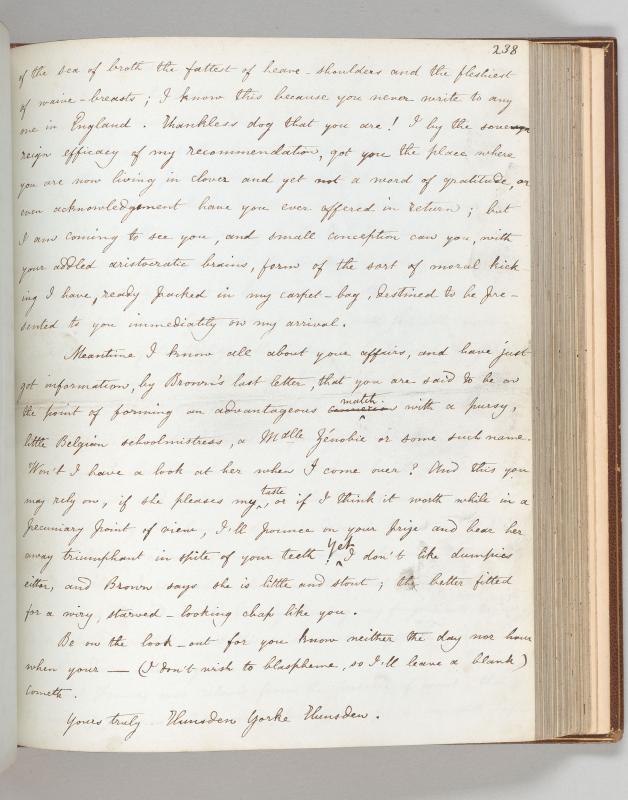 238
of the sea of broth the fattest of heave-shoulders and the fleshiest
of waive-breasts; I know this because you never write to any
one in England. Thankless dog that you are! I by the sove
reign efficacy of my recommendation, got you the place where
you are now living in clover and yet not a word of gratitude, or
even acknowledgement have you ever offered in return; but
I am coming to see you, and small conception can you, with
your addled aristocratic brains, form of the sort of moral kick-
ing I have, ready packed in my carpet-bag, destined to be pre-
sented to you immediatly on my arrival.
Meantime I know all about your affairs, and have just
got information, by Brown's last letter, that you are said to be on
the point of forming an advantageous match with a pursy,
little Belgian schoolmistress, a Mdlle Zénobie or some such name.
Won't I have a look at her when I come over? And this you
may rely on, if she pleases my taste, or if I think it worth while in a
pecuniary point of view, I'll pounce on your prize and bear her
away triumphant in spite of your teeth! Yet I don't like dumpies
either, and Brown says she is little and stout; the better fitted
for a wiry, starved-looking chap like you.
Be on the look-out for you know neither the day nor hour
when your — (I don't wish to blaspheme, so I'll leave a blank)
cometh.
Yours truly Hunsden Yorke Hunsden.